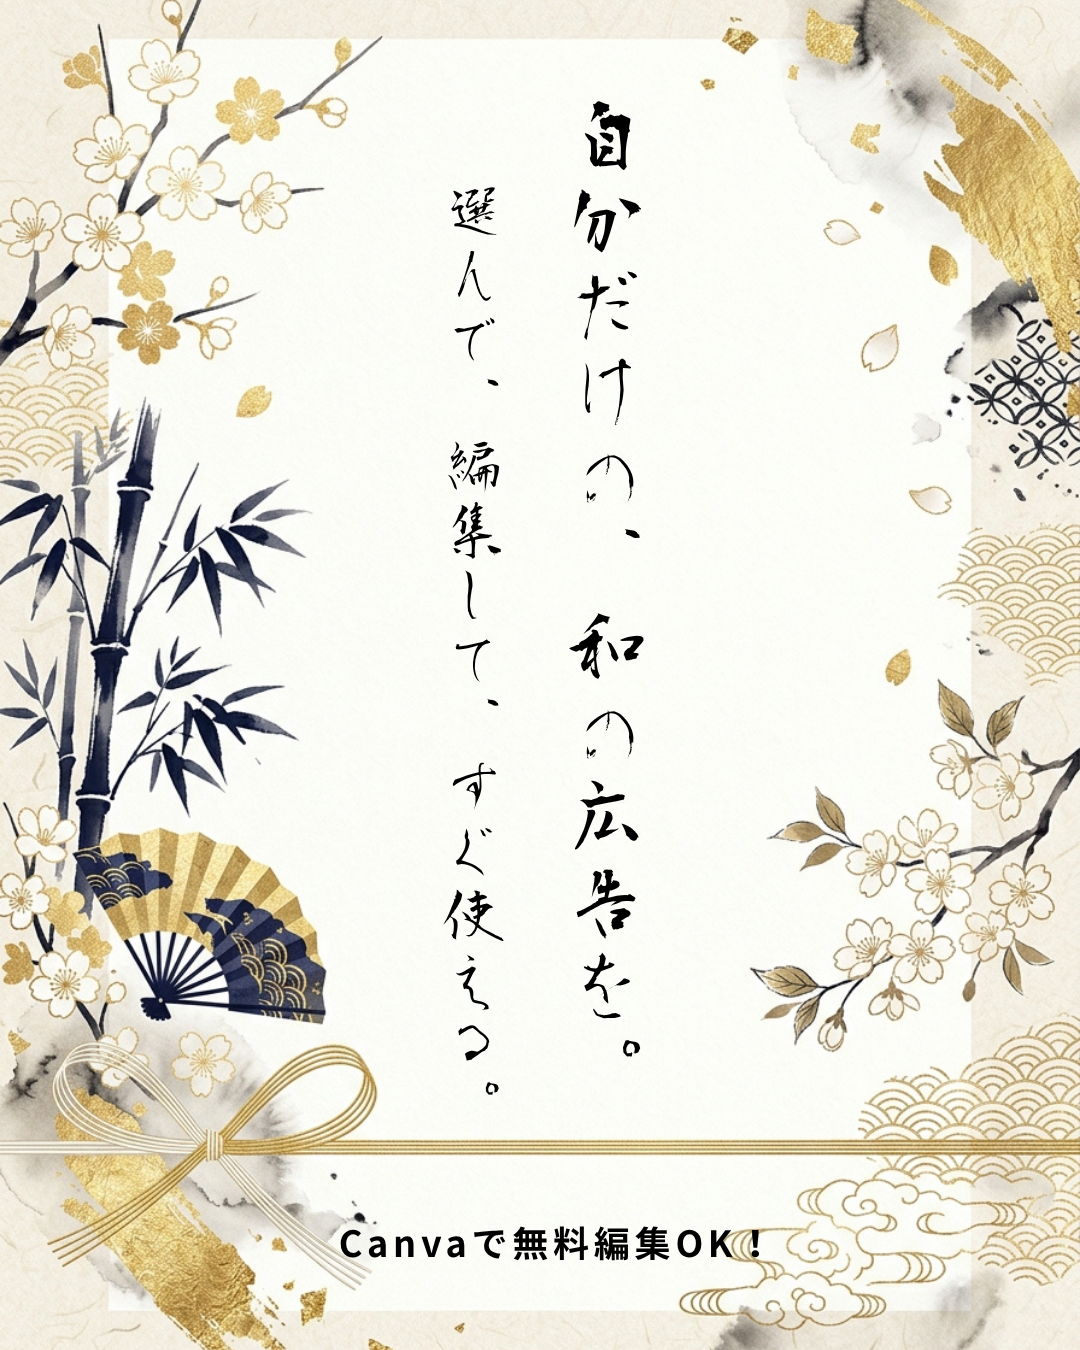 自分だけの、和の広告を。
選んで、編集して、すぐ使える。
Canvaで無料編集OK！